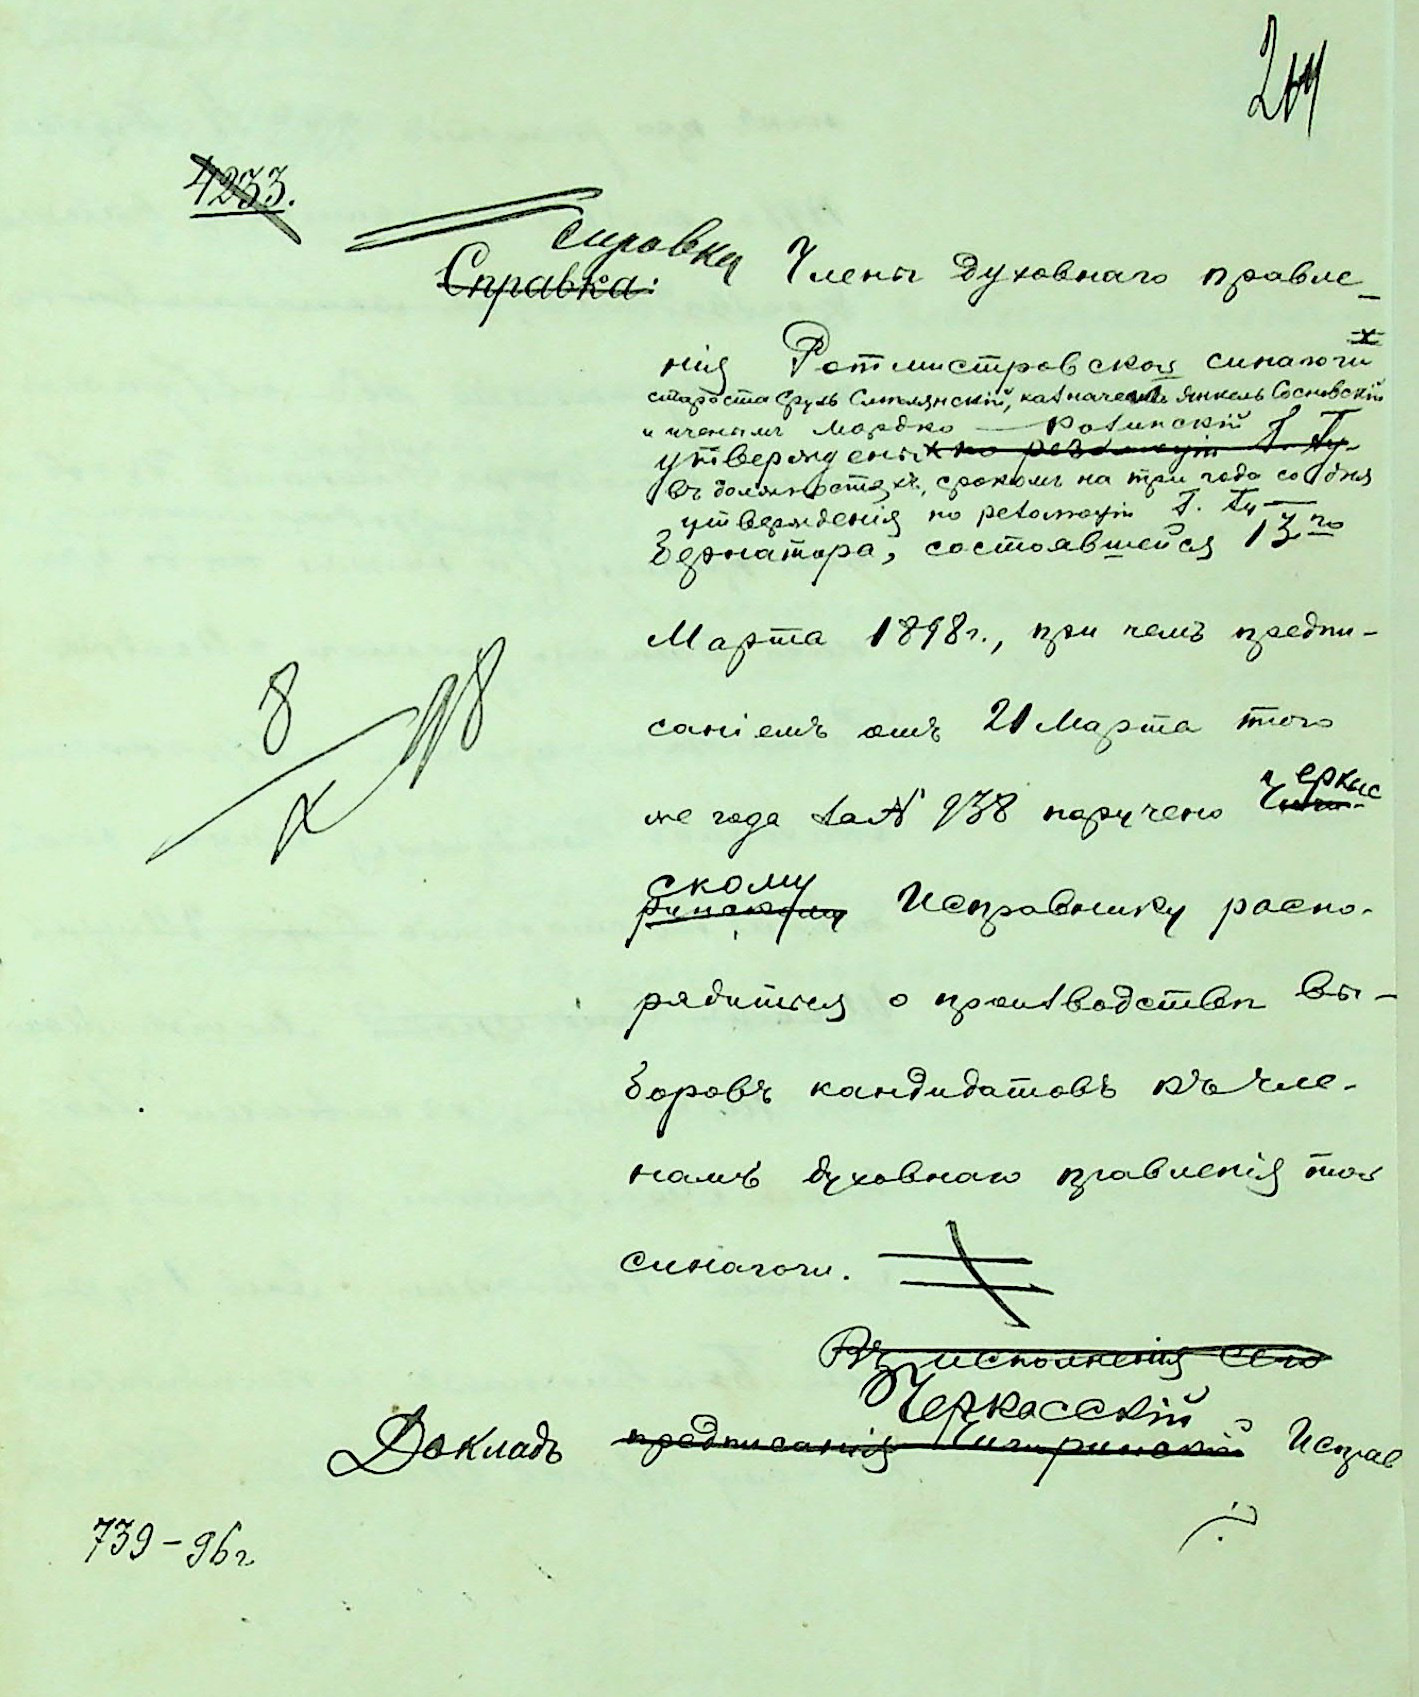 204
4233.
справка
Справка: Члены духовнаго правле-
нія Ротмистровской синагоги
староста Сруль Смилянскій, казначей Янкель Сосновскій
и ученымъ Мордко Розинскій
утверждены по резолюціи Г. Гу-
въ должностяхъ, срокомъ на три года со дня
утвержденія по резолюціи Г. Гу-
бернатора, состоявшейся 13го
Марта 1898г., при чемъ предпи-
саніемъ отъ 21 Марта того
8/X 98
же года за № 938 поручено Чиги-
Черкас
скому
ринскому Исправнику распо-
рядиться о производствѣ вы-
боровъ кандидатовъ къ чле-
намъ духовнаго правленія той
синагоги.
Въ исполненія сего
Черкасскій
Докладъ предписанія Чигиринскій Исправ
739-96г